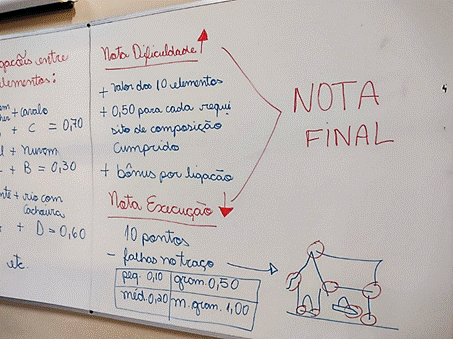 gações entre
elementos:
+ cavalo
+ C = 0,70
+ nuvem
+ B = 0,30
+ rio com
cachoeira
+ D = 0,60
etc.
Nota Dificuldade
+ valor dos 10 elementos
+ 0,50 para cada requi
sito de composição
cumprido
+ bônus por ligação
Nota Execução
10 pontos
- falhas no traço
peq. 0,10 gram. 0,50
méd. 0,20 m. gram. 1,00
NOTA
FINAL